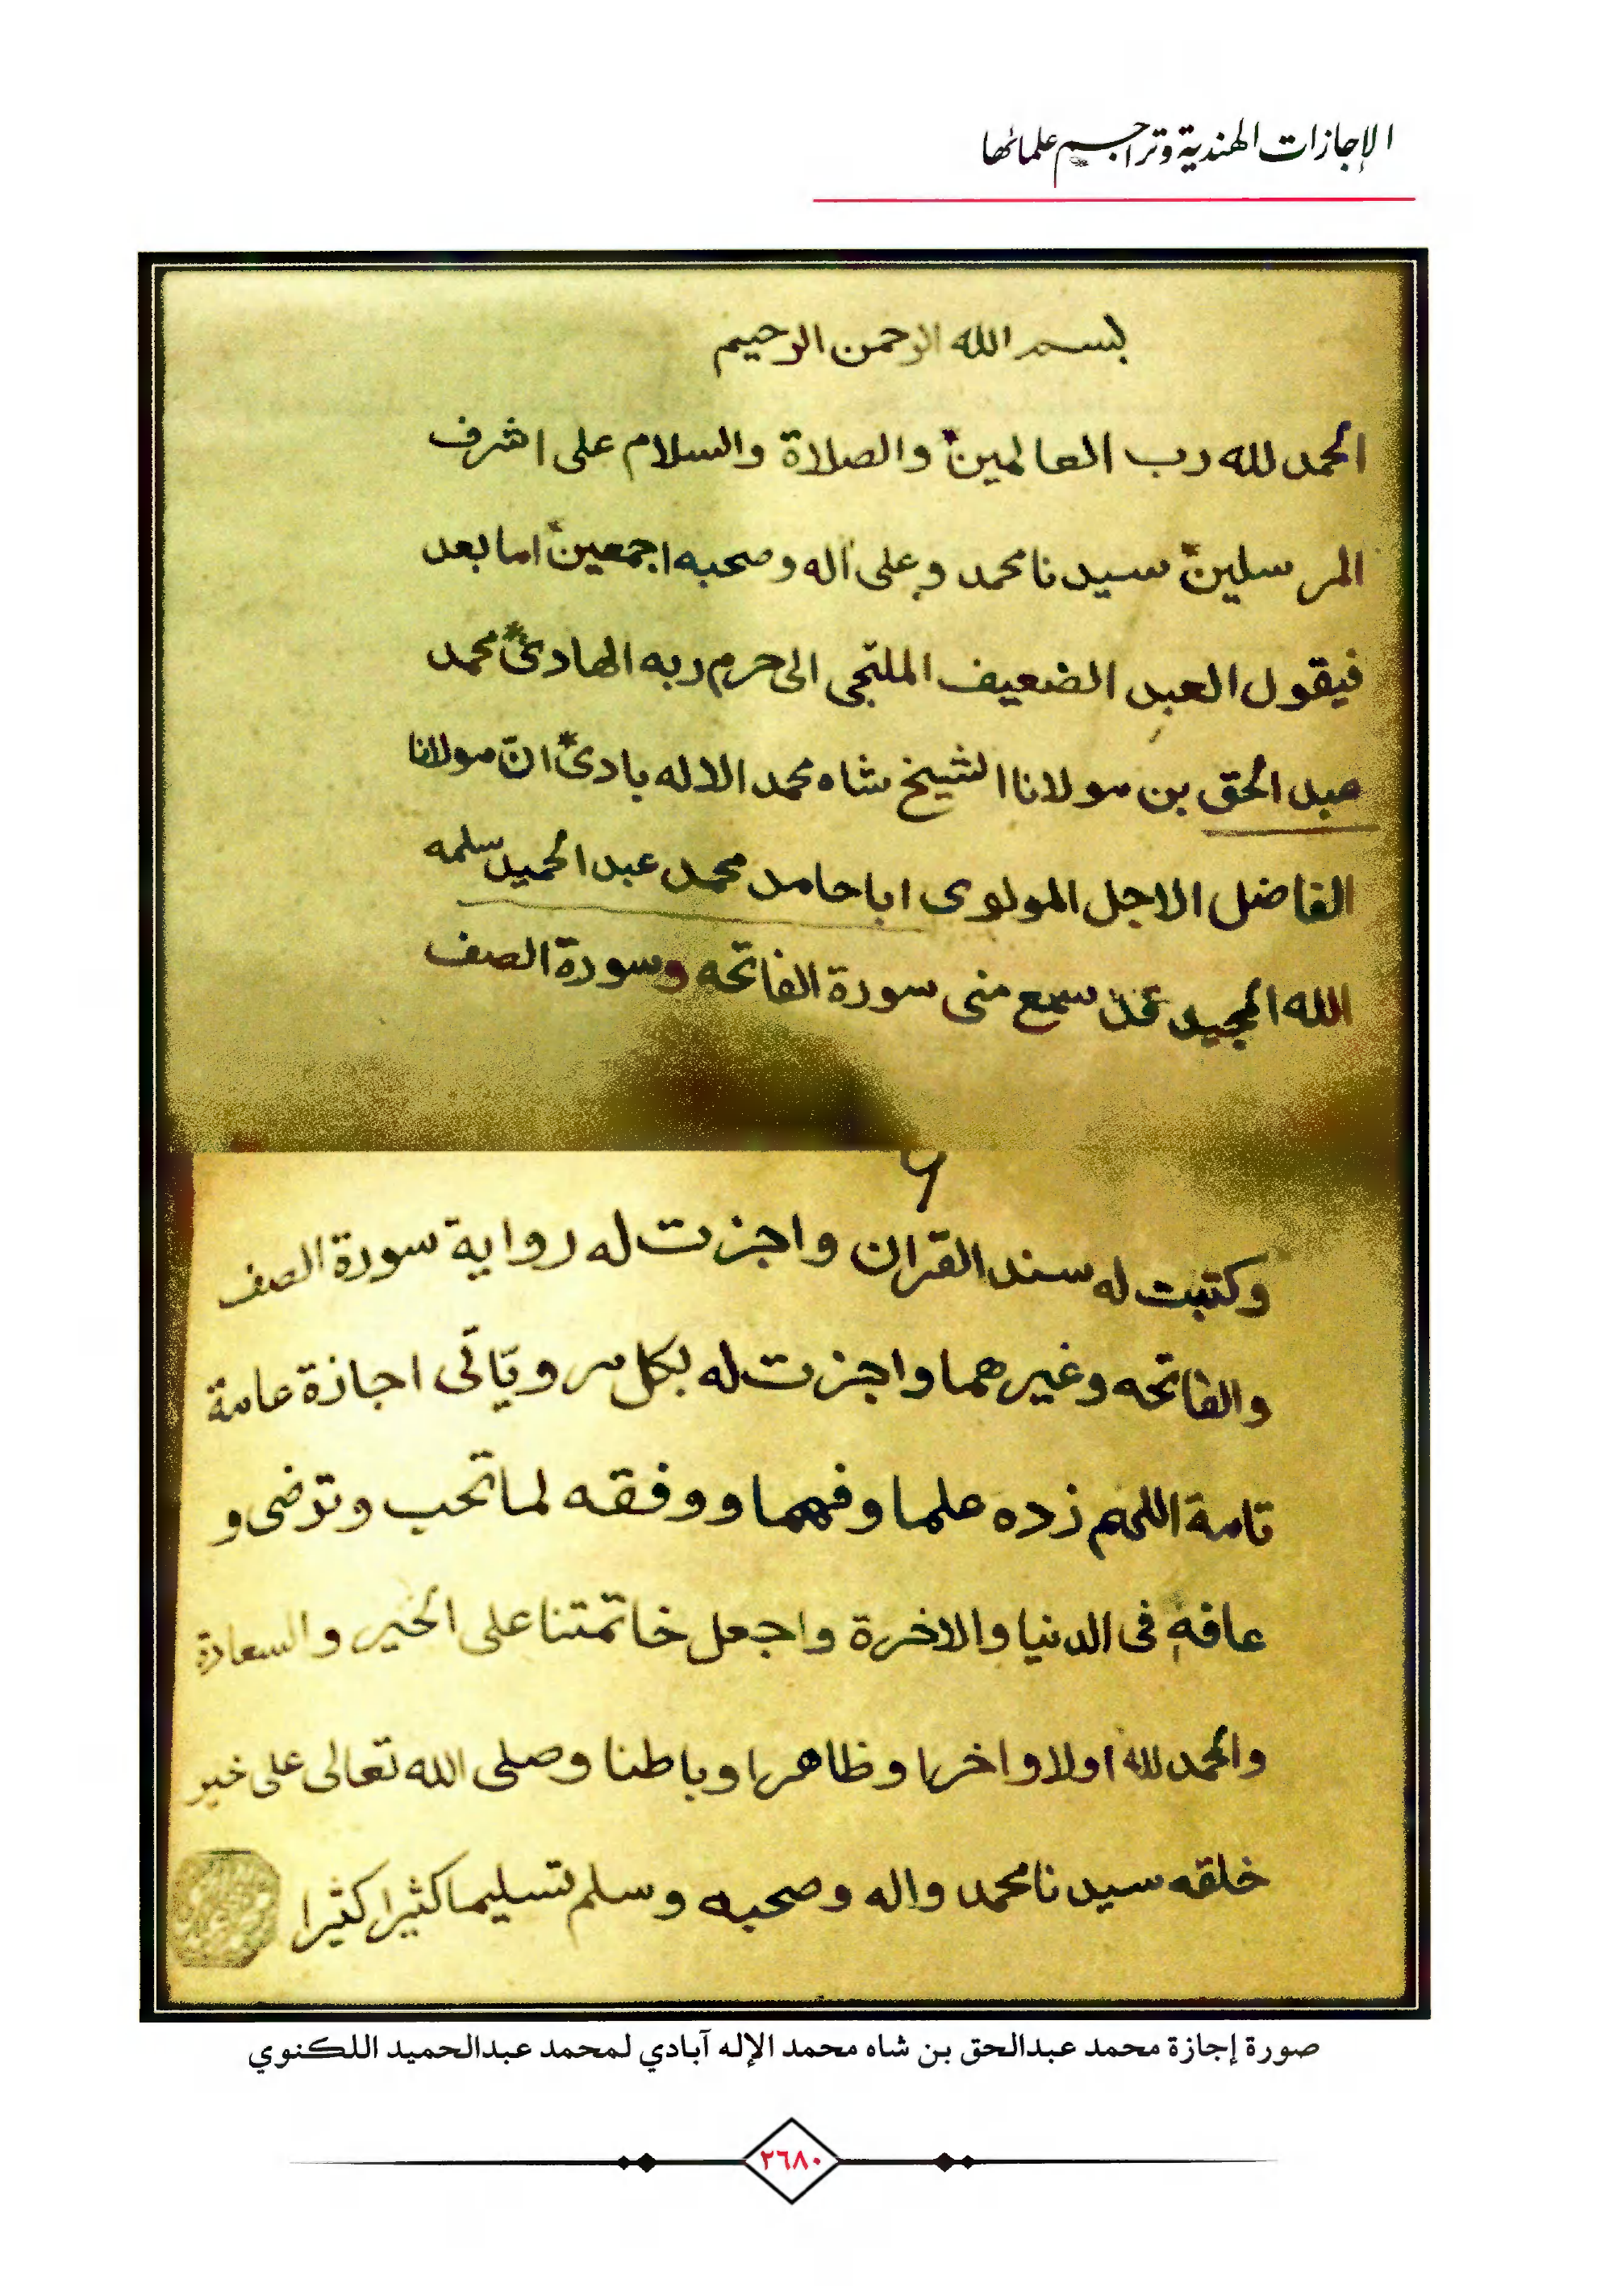 الإجازات الهندية وتراجم علمائها
بسم الله الرحمن الرحيم
الحمد لله رب العالمين والصلاة والسلام على اشرف
المرسلين سيدنا محمد وعلى آله وصحبه اجمعين اما بعد
فيقول العبد الضعيف الملتجى الى حرم ربه الهادى محمد
عبد الحق بن مولانا الشيخ شاه محمد الاله بادى انّ مولانا
الفاضل الاجل المولوى ابا حامد محمد عبد الحميد سلمه
الله المجيد قد سمع منى سورة الفاتحه وسورة الصف
٦
وكتبت له سند القران واجزت له رواية سورة الصف
والفاتحه وغيرهما واجزت له بكل مرويّاتى اجازة عامة
تامة اللهم زده علما وفهما ووفقه لما تحب وترضى و
عافه فى الدنيا والاخرة واجعل خاتمتنا على الخير والسعادة
والحمد لله اولا واخرا وظاهرا وباطنا وصلى الله تعالى على خير
خلقه سيدنا محمد واله وصحبه وسلم تسليما كثيرا كثيرا
صورة إجازة محمد عبدالحق بن شاه محمد الإله آبادي لمحمد عبدالحميد اللكنوي
٢٦٨٠